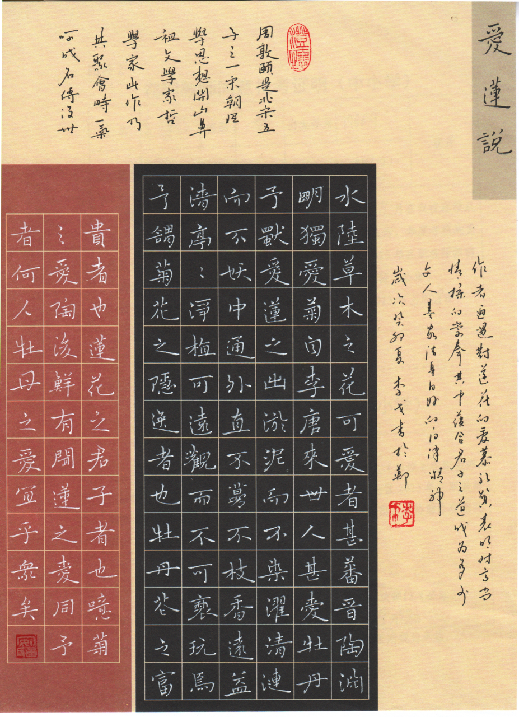 愛蓮說
周敦頤是北宋五
子之一宋朝理
學思想開山鼻
祖文學家哲
學家此作乃
其聚會時一氣
呵成名傳後世
水陸草木之花可愛者甚蕃晉陶淵
明獨愛菊自李唐來世人甚愛牡丹
予獨愛蓮之出淤泥而不染濯清漣
而不妖中通外直不蔓不枝香遠益
清亭〻淨植可遠觀而不可褻玩焉
予謂菊花之隱逸者也牡丹花之富
貴者也蓮花之君子者也噫菊
之愛陶後鮮有聞蓮之愛同予
者何人牡丹之愛宜乎眾矣
作者通過對蓮花的愛慕
情操的其中蕴含君子之道成为多少
文人墨客潔身自好的精神
歲次癸卯夏李戈書於鄭